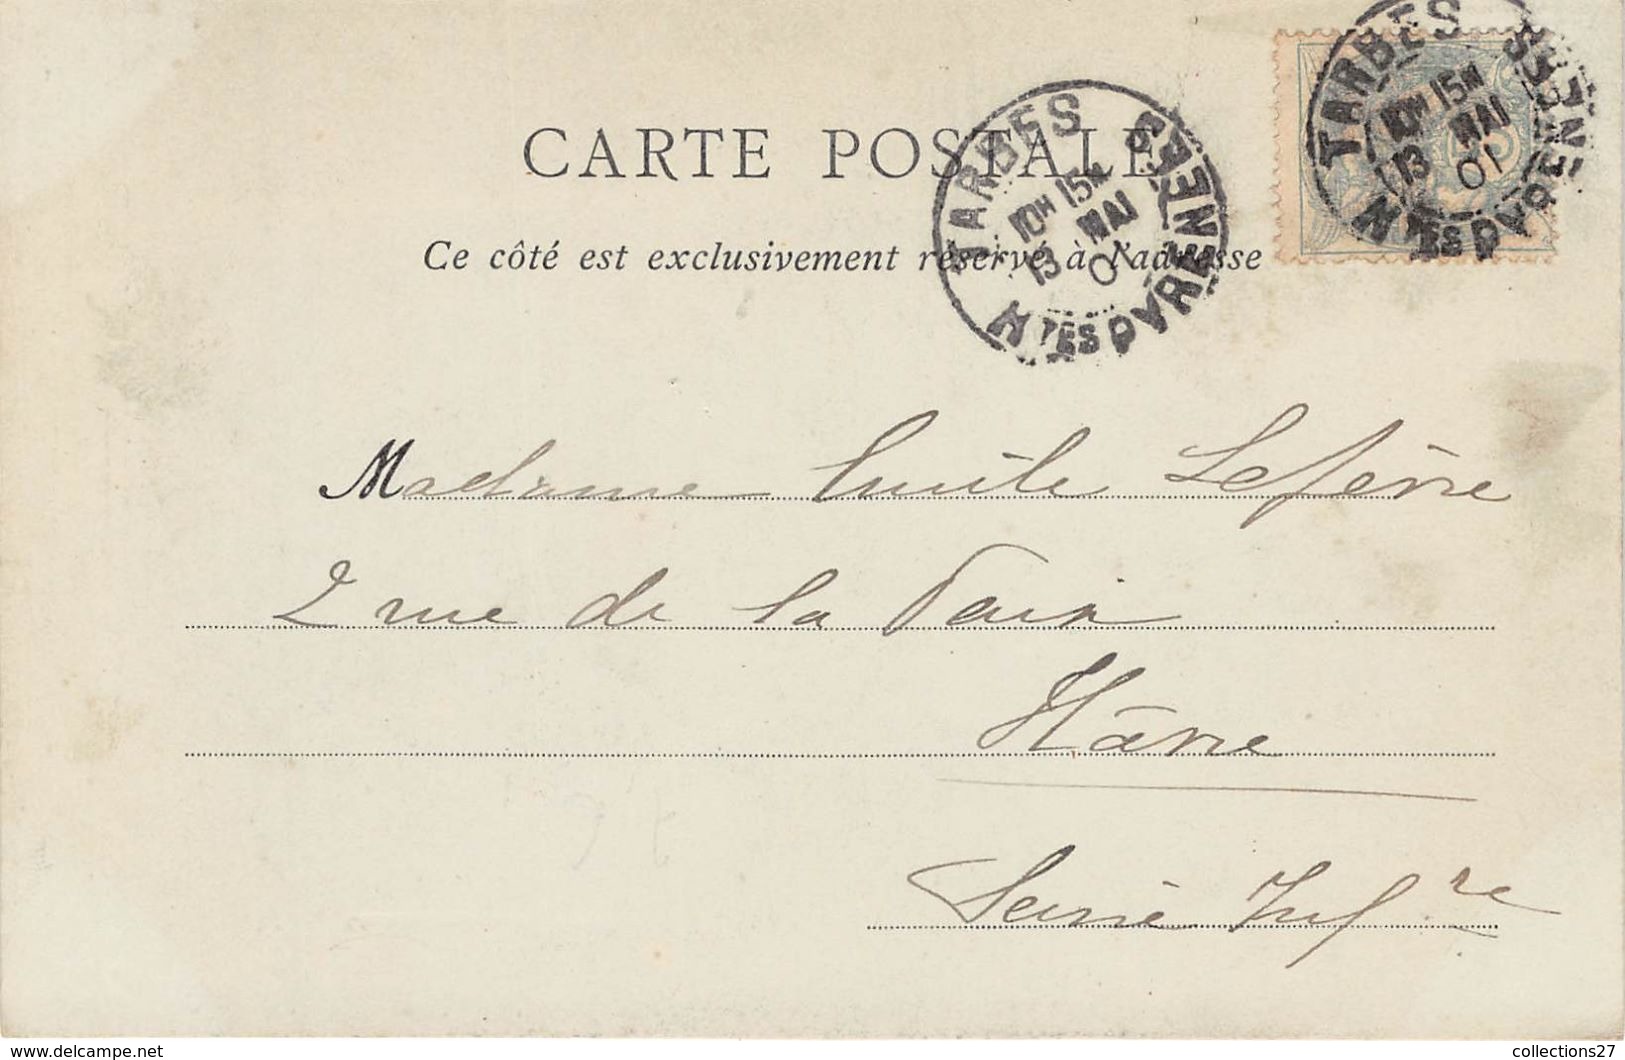 CARTE POSTALE
Ce côté est exclusivement réservé à l'adresse
TARBES
10H 15M
13 MAI
0
HTES PYRENEES
TARBES
10H 15M
13 MAI
01
HTES PYRENEES
Madame Lucile Lefèvre
2 rue de la Paix
Hâvre
Seine Infre
www.delcampe.net
collections27